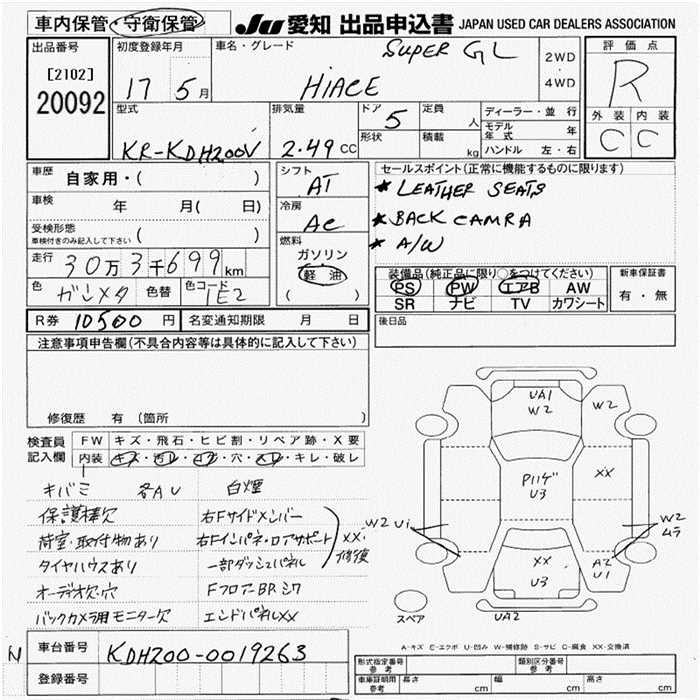 車内保管・守衛保管 JU 愛知 出品申込書 JAPAN USED CAR DEALERS ASSOCIATION
出品番号 初度登録年月 車名・グレード SUPER GL 2WD 評価点
[2102] 17 5月 HIACE 4WD R
20092
型式 排気量 ドア 5 定員 人 ディーラー・並行 外装 内装
KR-KDH200V 2.49 CC 形状 積載 kg モデル年式 年 C C
ハンドル 左・右
車歴 自家用・( ) シフト AT セールスポイント(正常に機能するものに限ります)
車検 年 月( 日) 冷房 AC * LEATHER SEATS
受検形態 車検付きのみ記入して下さい ( ) 燃料 * BACK CAMRA
走行 30万3千699km ガソリン * A/W
軽油
( )
色 ガンメタ 色替 色コード 1E2
装備品(純正品に限り○をつけてください) 新車保証書
PS PW エアB AW 有・無
SR ナビ TV カワシート
R券 10500円 名変通知期限 月 日 後日品
注意事項申告欄(不具合内容等は具体的に記入して下さい)
修復歴 有(箇所 )
検査員記入欄 FW キズ・飛石・ヒビ割・リペア跡・X要
内装 キズ・汚レ・コゲ・穴・スレ・キレ・破レ
キバミ 各AU 白煙
保護棒欠 右Fサイドメンバー
荷室・取付物あり 右Fインパネ・ロアサポート XX・修復
タイヤハウスあり 一部ダッシュパネル
オーディオ欠・穴 FフロアーBRシワ
バックカメラ用モニター欠 エンドパネルXX
UA1
W2
W2
U3
XX
W2 Ui
W2
ムラ
XX
U3
A2
U1
スペア
UA2
A-キズ E-エクボ U-凹み W-補修跡 S-サビ C-腐食 XX-交換済
N 車台番号 KDH200-0019263
登録番号
形式指定番号 参考 類別区分番号 参考
車庫証明用 参考 長さ cm 幅 cm 高さ cm